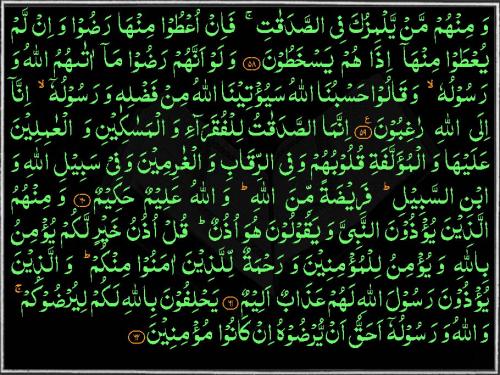 وَ مِنْهُمْ مَّنْ يَّلْمِزُكَ فِی الصَّدَقٰتِ ۚ فَاِنْ اُعْطُوْا مِنْهَا رَضُوْا وَ اِنْ لَّمْ
یُعْطَوْا مِنْهَاۤ اِذَا هُمْ یَسْخَطُوْنَ ﴿۵۸﴾ وَ لَوْ اَنَّهُمْ رَضُوْا مَاۤ اٰتٰىهُمُ اللهُ وَ
رَسُوْلُهٗ ۙ وَ قَالُوْا حَسْبُنَا اللهُ سَیُؤْتِیْنَا اللهُ مِنْ فَضْلِهٖ وَ رَسُوْلُهٗۤ ۙ اِنَّاۤ
اِلَی اللهِ رٰغِبُوْنَ ﴿۵۹﴾ ع اِنَّمَا الصَّدَقٰتُ لِلْفُقَرَآءِ وَ الْمَسٰكِیْنِ وَ الْعٰمِلِیْنَ
عَلَیْهَا وَ الْمُؤَلَّفَةِ قُلُوْبُهُمْ وَ فِی الرِّقَابِ وَ الْغٰرِمِیْنَ وَ فِیْ سَبِیْلِ اللهِ وَ
ابْنِ السَّبِیْلِ ؕ فَرِیْضَةً مِّنَ اللهِ ؕ وَ اللهُ عَلِیْمٌ حَكِیْمٌ ﴿۶۰﴾ وَ مِنْهُمُ
الَّذِیْنَ یُؤْذُوْنَ النَّبِیَّ وَ یَقُوْلُوْنَ هُوَ اُذُنٌ ؕ قُلْ اُذُنُ خَیْرٍ لَّكُمْ یُؤْمِنُ
بِاللهِ وَ یُؤْمِنُ لِلْمُؤْمِنِیْنَ وَ رَحْمَةٌ لِّلَّذِیْنَ اٰمَنُوْا مِنْكُمْ ؕ وَ الَّذِیْنَ
یُؤْذُوْنَ رَسُوْلَ اللهِ لَهُمْ عَذَابٌ اَلِیْمٌ ﴿۶۱﴾ یَحْلِفُوْنَ بِاللهِ لَكُمْ لِیُرْضُوْكُمْ ۚ
وَ اللهُ وَ رَسُوْلُهٗۤ اَحَقُّ اَنْ یُّرْضُوْهُ اِنْ كَانُوْا مُؤْمِنِیْنَ ﴿۶۲﴾